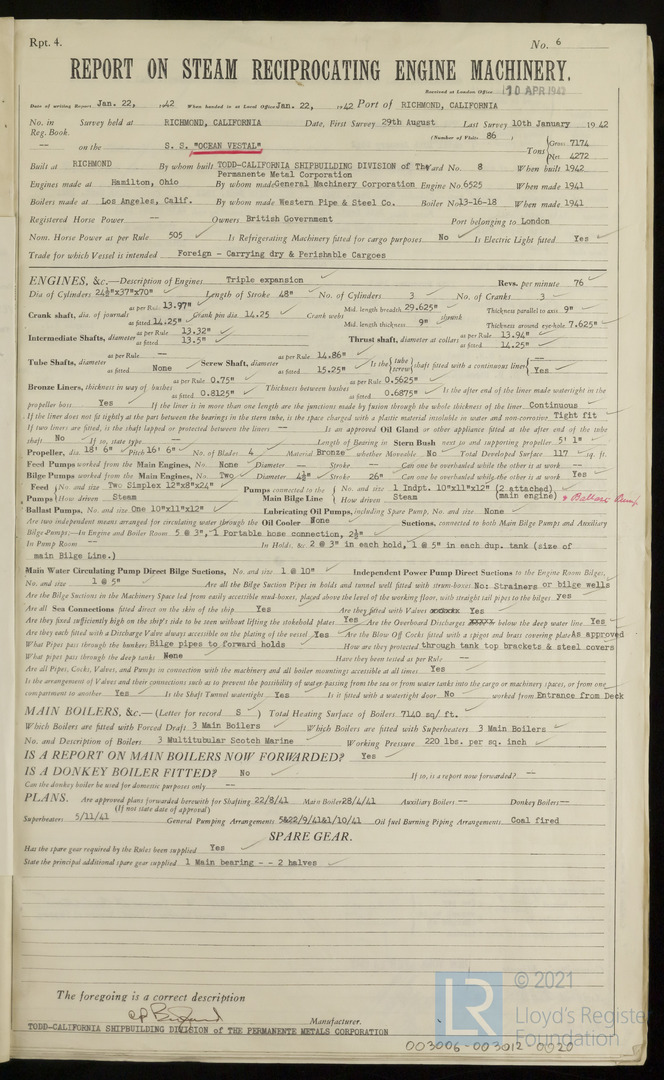 Rpt. 4.
No. 6
REPORT ON STEAM RECIPROCATING ENGINE MACHINERY.
Received at London Office 10 APR 1942
Date of writing Report Jan. 22, 1942 When handed in at Local Office Jan. 22, 1942 Port of RICHMOND, CALIFORNIA
No. in Reg. Book. Survey held at RICHMOND, CALIFORNIA Date, First Survey 29th August Last Survey 10th January 1942
(Number of Visits 86 )
-- on the S. S. "OCEAN VESTAL" Tons { Gross 7174 Net 4272
Built at RICHMOND By whom built TODD-CALIFORNIA SHIPBUILDING DIVISION of The Yard No. 8 When built 1942
Permanente Metal Corporation
Engines made at Hamilton, Ohio By whom made General Machinery Corporation Engine No. 6525 When made 1941
Boilers made at Los Angeles, Calif. By whom made Western Pipe & Steel Co. Boiler No 13-16-18 When made 1941
Registered Horse Power -- Owners British Government Port belonging to London
Nom. Horse Power as per Rule 505 Is Refrigerating Machinery fitted for cargo purposes No Is Electric Light fitted Yes
Trade for which Vessel is intended Foreign - Carrying dry & Perishable Cargoes
ENGINES, &c.—Description of Engines Triple expansion Revs. per minute 76
Dia of Cylinders 24½"x37"x70" Length of Stroke 48" No. of Cylinders 3 No. of Cranks 3
Crank shaft, dia. of journals as per Rule 13.97" as fitted 14.25" Crank pin dia 14.25 Crank webs Mid. length breadth 29.625" Mid. length thickness 9" shrunk Thickness parallel to axis 9" Thickness around eye-hole 7.625"
Intermediate Shafts, diameter as per Rule 13.32" as fitted 13.5" Thrust shaft, diameter at collars as per Rule 13.94" as fitted 14.25"
Tube Shafts, diameter as per Rule -- as fitted None Screw Shaft, diameter as per Rule 14.86" as fitted 15.25" Is the { tube screw } shaft fitted with a continuous liner { -- Yes
Bronze Liners, thickness in way of bushes as per Rule 0.75" as fitted 0.8125" Thickness between bushes as per Rule 0.5625" as fitted 0.6875" Is the after end of the liner made watertight in the
propeller boss Yes If the liner is in more than one length are the junctions made by fusion through the whole thickness of the liner Continuous
If the liner does not fit tightly at the part between the bearings in the stern tube, is the space charged with a plastic material insoluble in water and non-corrosive Tight fit
If two liners are fitted, is the shaft lapped or protected between the liners -- Is an approved Oil Gland or other appliance fitted at the after end of the tube
shaft No If so, state type -- Length of Bearing in Stern Bush next to and supporting propeller 5' 1"
Propeller, dia 18' 6" Pitch 16' 6" No. of Blades 4 Material Bronze whether Moveable No Total Developed Surface 117 sq. ft.
Feed Pumps worked from the Main Engines, No. None Diameter -- Stroke -- Can one be overhauled while the other is at work --
Bilge Pumps worked from the Main Engines, No. Two Diameter 4½" Stroke 26" Can one be overhauled while the other is at work Yes
Feed Pumps { No. and size Two Simplex 12"x8"x24" How driven Steam Pumps connected to the Main Bilge Line { No. and size 1 Indpt. 10"x11"x12" (2 attached) How driven Steam (main engine) & Ballast Pump
Ballast Pumps, No. and size One 10"x11"x12" Lubricating Oil Pumps, including Spare Pump, No. and size None
Are two independent means arranged for circulating water through the Oil Cooler None Suctions, connected to both Main Bilge Pumps and Auxiliary
Bilge Pumps:—In Engine and Boiler Room 5 @ 3", 1 Portable hose connection, 2½"
In Pump Room -- In Holds, &c 2 @ 3" in each hold, 1 @ 5" in each dup. tank (size of
main Bilge Line.)
Main Water Circulating Pump Direct Bilge Suctions, No. and size 1 @ 10" Independent Power Pump Direct Suctions to the Engine Room Bilges,
No. and size 1 @ 5" Are all the Bilge Suction Pipes in holds and tunnel well fitted with strum-boxes No: Strainers or bilge wells
Are the Bilge Suctions in the Machinery Space led from easily accessible mud-boxes, placed above the level of the working floor, with straight tail pipes to the bilges. yes
Are all Sea Connections fitted direct on the skin of the ship. Yes Are they fitted with Valves Yes
Are they fixed sufficiently high on the ship's side to be seen without lifting the stokehold plates Yes Are the Overboard Discharges below the deep water line Yes
Are they each fitted with a Discharge Valve always accessible on the plating of the vessel Yes Are the Blow Off Cocks fitted with a spigot and brass covering plate As approved
What Pipes pass through the bunkers Bilge pipes to forward holds How are they protected through tank top brackets & steel covers
What pipes pass through the deep tanks None Have they been tested as per Rule --
Are all Pipes, Cocks, Valves, and Pumps in connection with the machinery and all boiler mountings accessible at all times Yes
Is the arrangement of Valves and their connections such as to prevent the possibility of water passing from the sea or from water tanks into the cargo or machinery spaces, or from one
compartment to another Yes Is the Shaft Tunnel watertight Yes Is it fitted with a watertight door No worked from Entrance from Deck
MAIN BOILERS, &c.—(Letter for record S ) Total Heating Surface of Boilers 7140 sq/ ft.
Which Boilers are fitted with Forced Draft 3 Main Boilers Which Boilers are fitted with Superheaters 3 Main Boilers
No. and Description of Boilers 3 Multitubular Scotch Marine Working Pressure 220 lbs. per sq. inch
IS A REPORT ON MAIN BOILERS NOW FORWARDED? Yes
IS A DONKEY BOILER FITTED? No If so, is a report now forwarded? --
Can the donkey boiler be used for domestic purposes only --
PLANS. Are approved plans forwarded herewith for Shafting 22/8/41 Main Boiler 28/4/41 Auxiliary Boilers -- Donkey Boilers --
(If not state date of approval)
Superheaters 5/11/41 General Pumping Arrangements 5&22/9/41&1/10/41 Oil fuel Burning Piping Arrangements. Coal fired
SPARE GEAR.
Has the spare gear required by the Rules been supplied Yes
State the principal additional spare gear supplied 1 Main bearing - - 2 halves
The foregoing is a correct description
Manufacturer.
TODD-CALIFORNIA SHIPBUILDING DIVISION of THE PERMANENTE METALS CORPORATION
003006-003012-0020
LR
© 2021
Lloyd's Register
Foundation